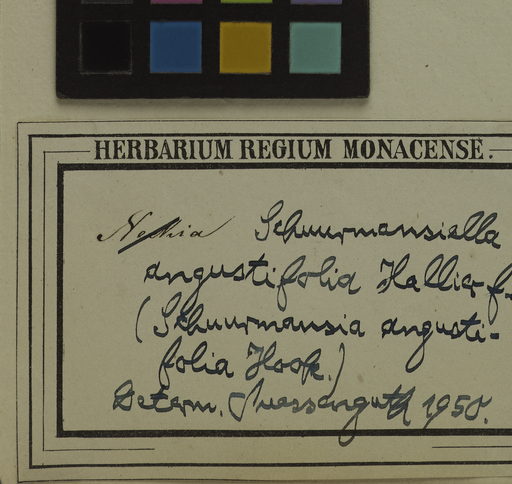 HERBARIUM REGIUM MONACENSE.
Schuurmansiella
angustifolia Hallier f.
(Schuurmansia angusti-
folia Hook.)
Determ. Suessenguth 1950.